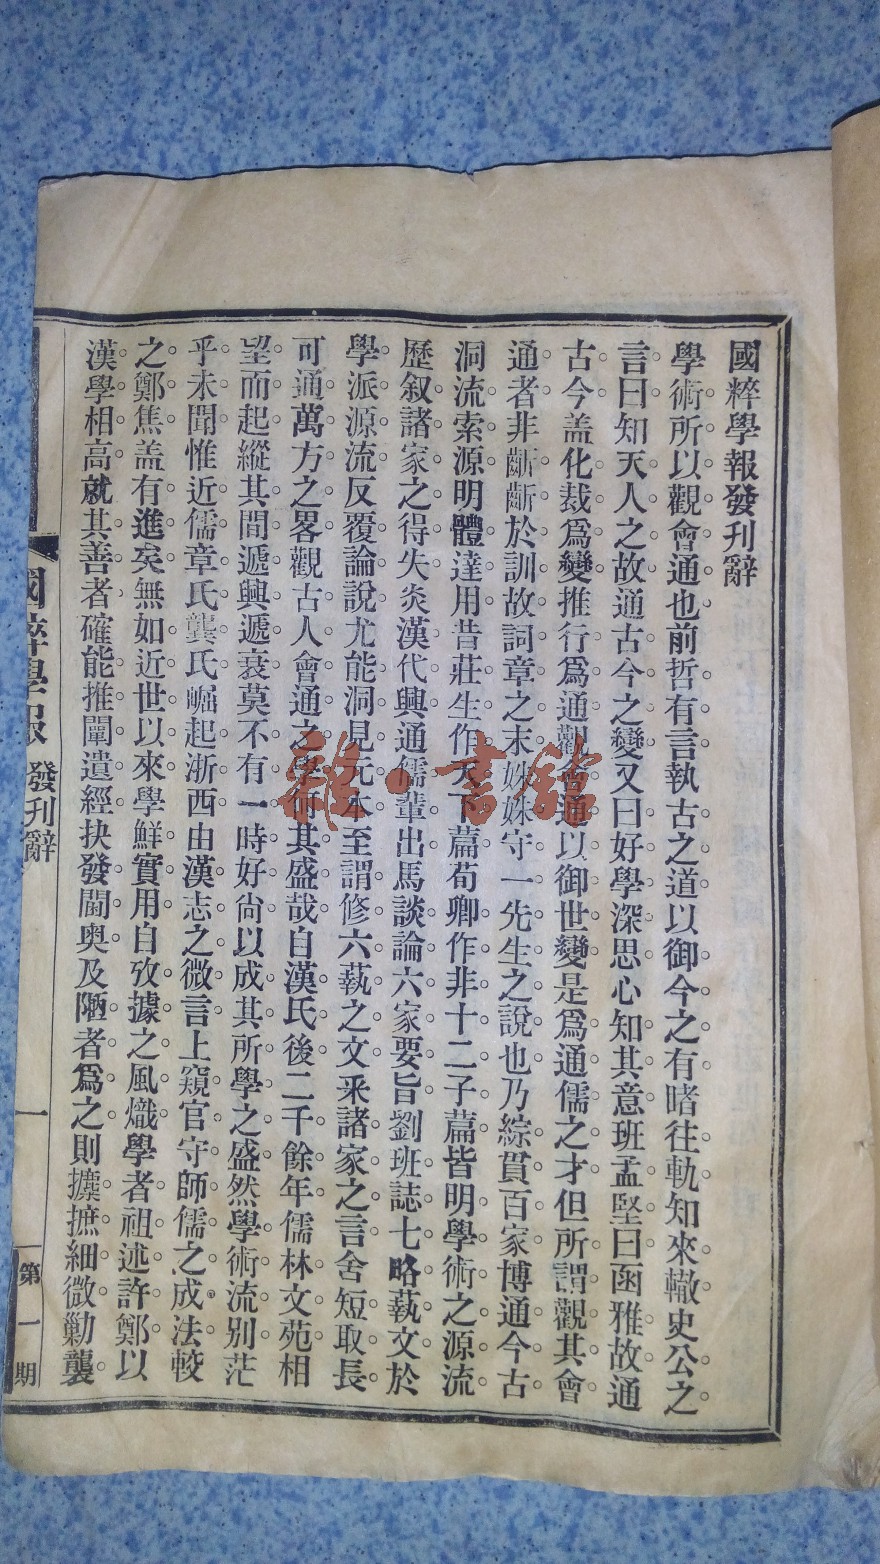 國粹學報發刊辭
學術所以觀會通也前哲有言執古之道以御今之有睹往軌知來轍史公之
言曰知天人之故通古今之變又曰好學深思心知其意班孟堅曰函雅故通
古今盖化裁爲變推行爲通觀會通以御世變是爲通儒之才但所謂觀其會
通者非齗齗於訓故詞章之末姝姝守一先生之說也乃綜貫百家博通今古
洞流索源明體達用昔莊生作天下篇荀卿作非十二子篇皆明學術之源流
歷叙諸家之得失炎漢代興通儒輩出馬談論六家要旨劉班誌七略藝文於
學派源流反覆論說尤能洞見元本至謂修六蓺之文釆諸家之言舍短取長
可通萬方之畧觀古人會通之學何其盛哉自漢氏後二千餘年儒林文苑相
望而起縱其間遞興遞衰莫不有一時好尙以成其所學之盛然學術流別茫
乎未聞惟近儒章氏龔氏崛起浙西由漢志之微言上窺官守師儒之成法較
之鄭焦盖有進矣無如近世以來學鮮實用自攷據之風熾學者祖述許鄭以
漢學相高就其善者確能推闡遺經抉發閫奥及陋者爲之則攟摭細微勦襲
國粹學報 發刊辭 一 第一期
雜·書館